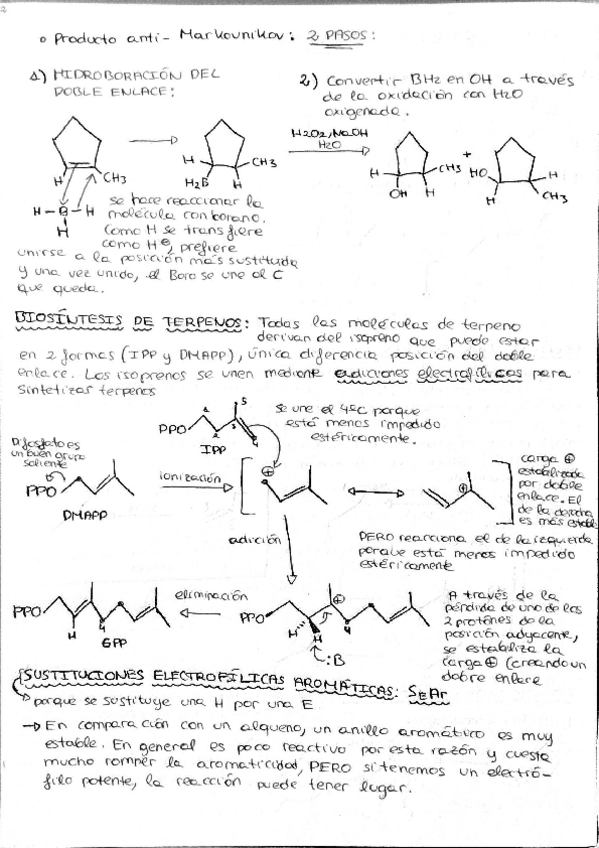 2
o Producto anti-Markovnikov: 2 PASOS:
1) HIDROBORACIÓN DEL
DOBLE ENLACE:
2) Convertir BH2 en OH a través
de la oxidación con H2O
oxigenada.
H2O2, NaOH
H2O
H CH3
H CH3
H2B H
H CH3
OH H
+
HO H
CH3
H-B-H
H
se hace reaccionar la
molécula con borano.
Como H se transfiere
como H⊖, prefiere
unirse a la posición más sustituida
y una vez unido, el Boro se une al C
que queda.
BIOSÍNTESIS DE TERPENOS: Todas las moléculas de terpeno
derivan del isopreno que puede estar
en 2 formas (IPP y DMAPP), única diferencia posición del doble
enlace. Los isoprenos se unen mediante adiciones electrofílicas para
sintetizar terpenos
PPO 1 2 3 4 5
IPP
Se une el 4ºC porque
está menos impedido
estéricamente.
Difosfato es
un buen grupo
saliente
PPO
DMAPP
ionización
⊕
⊕
carga ⊕
estabilizada
por doble
enlace. El
de la derecha
es más estable
PERO reacciona el de la izquierda
porque está menos impedido
estéricamente
adición
PPO
H 4
GPP
eliminación
PPO ⊕ 4
H H
:B
A través de la
pérdida de uno de los
2 protones de la
posición adyacente,
se estabiliza la
carga ⊕ (creando un
dobre enlace
SUSTITUCIONES ELECTROFÍLICAS AROMÁTICAS: SEAr
porque se sustituye una H por una E
→ En comparación con un alqueno, un anillo aromático es muy
estable. En general es poco reactivo por esta razón y cuesta
mucho romper la aromaticidad, PERO si tenemos un electró-
filo potente, la reacción puede tener lugar.